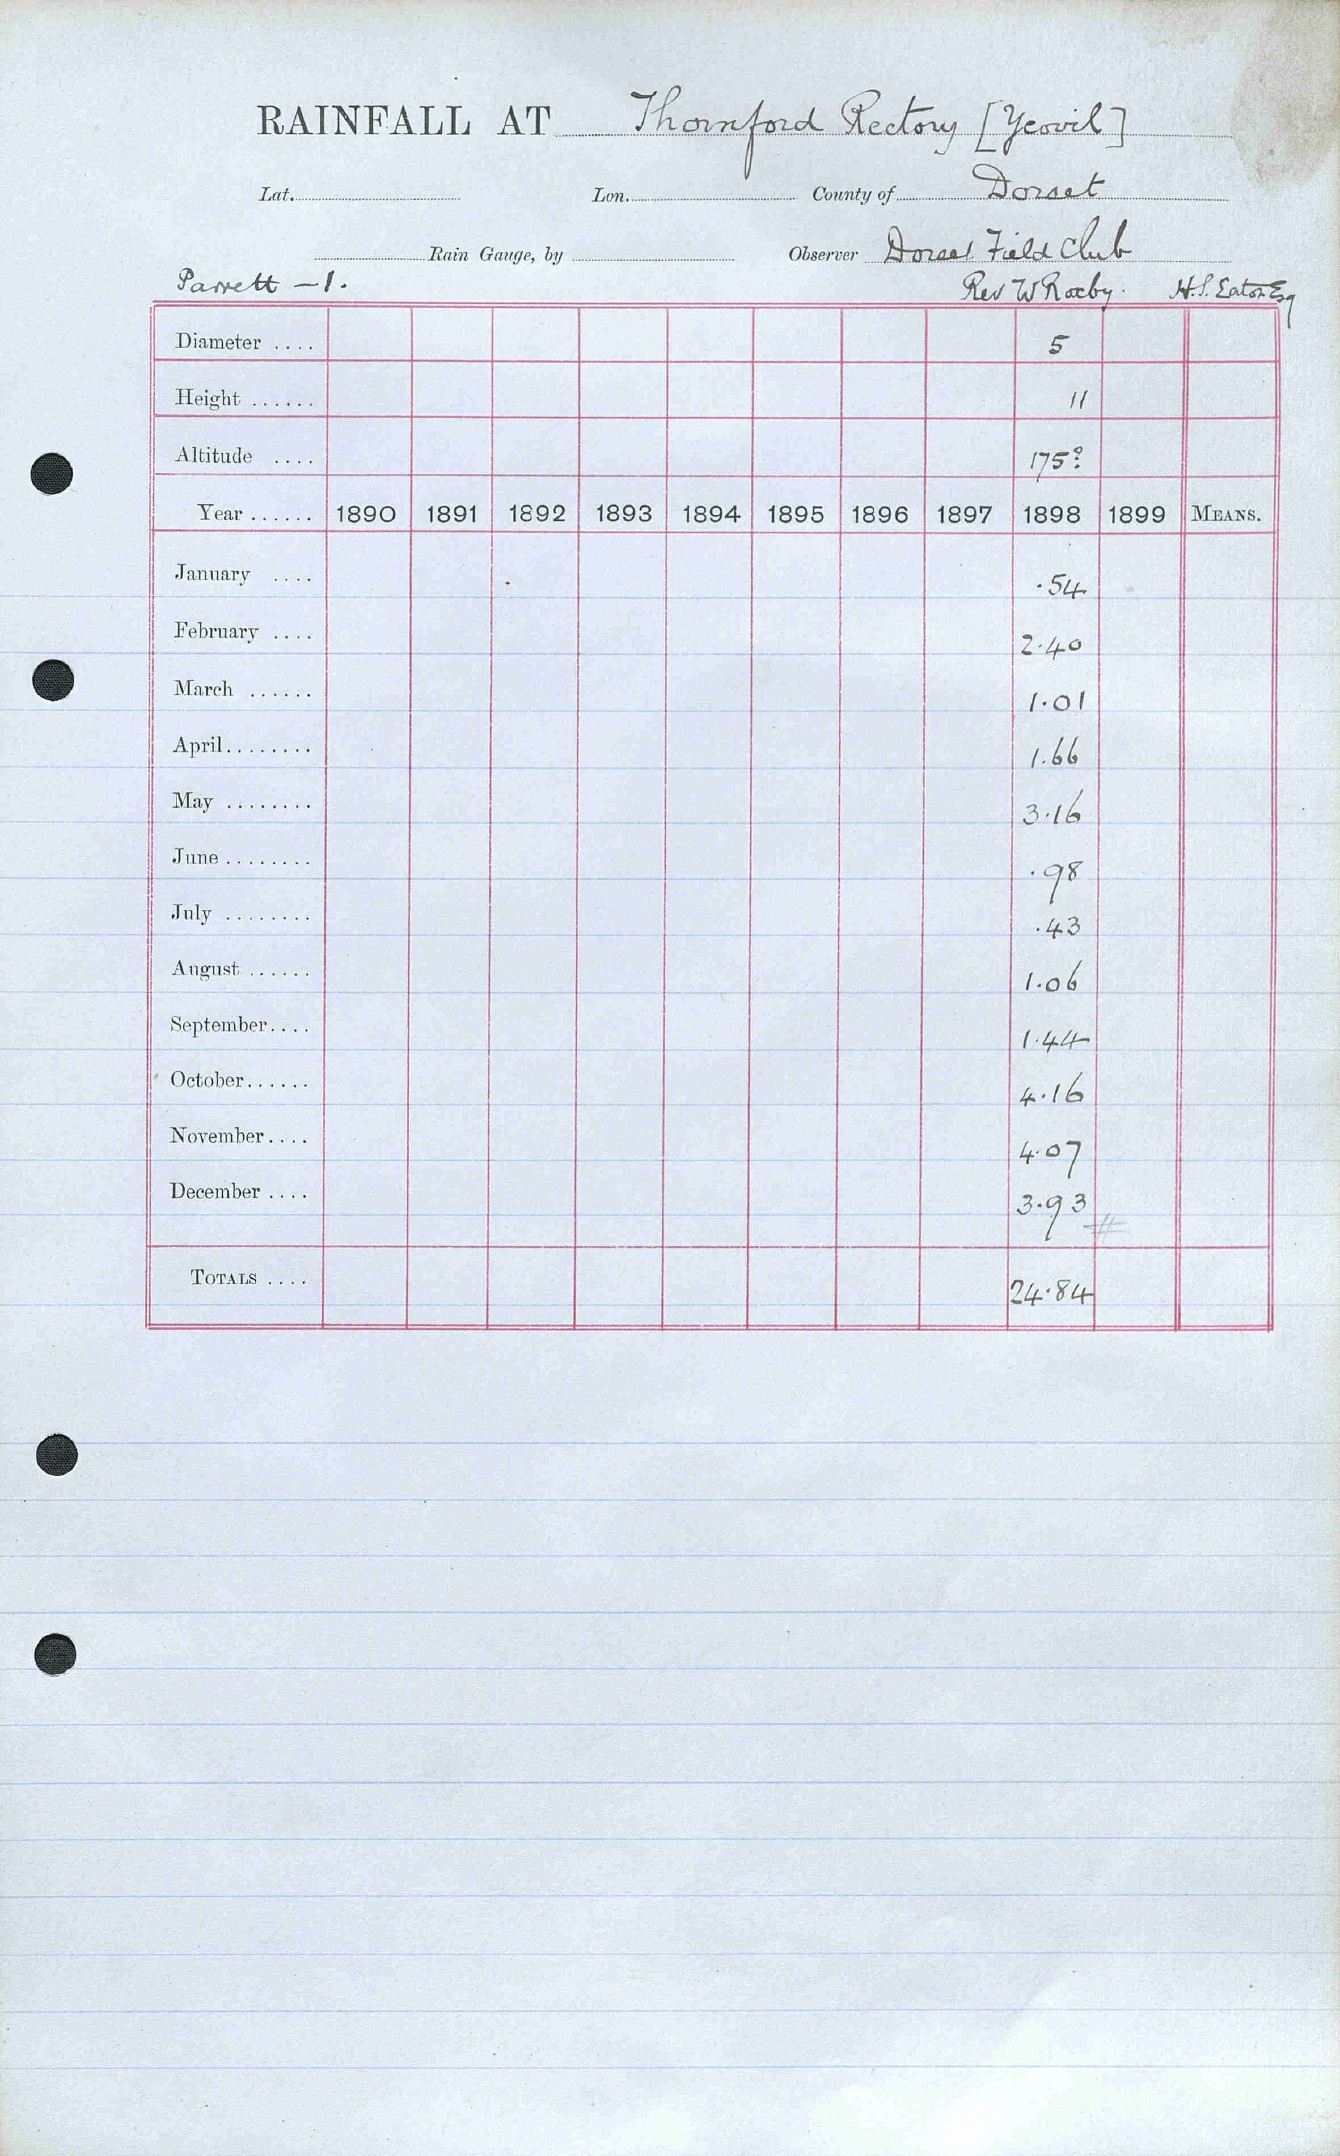 RAINFALL AT Thornford Rectory [Yeovil]
Lat. Lon. County of Dorset
Rain Gauge, by Observer Dorset Field Club
Parrett - 1. Rev W Roxby. H.S. Eaton Esq
Diameter .... 5
Height ...... 11
Altitude .... 175?
Year ...... 1890 1891 1892 1893 1894 1895 1896 1897 1898 1899 MEANS.
January .... .54
February .... 2.40
March ...... 1.01
April........ 1.66
May ........ 3.16
June ........ .98
July ........ .43
August ...... 1.06
September.... 1.44
October...... 4.16
November.... 4.07
December .... 3.93 #
TOTALS .... 24.84